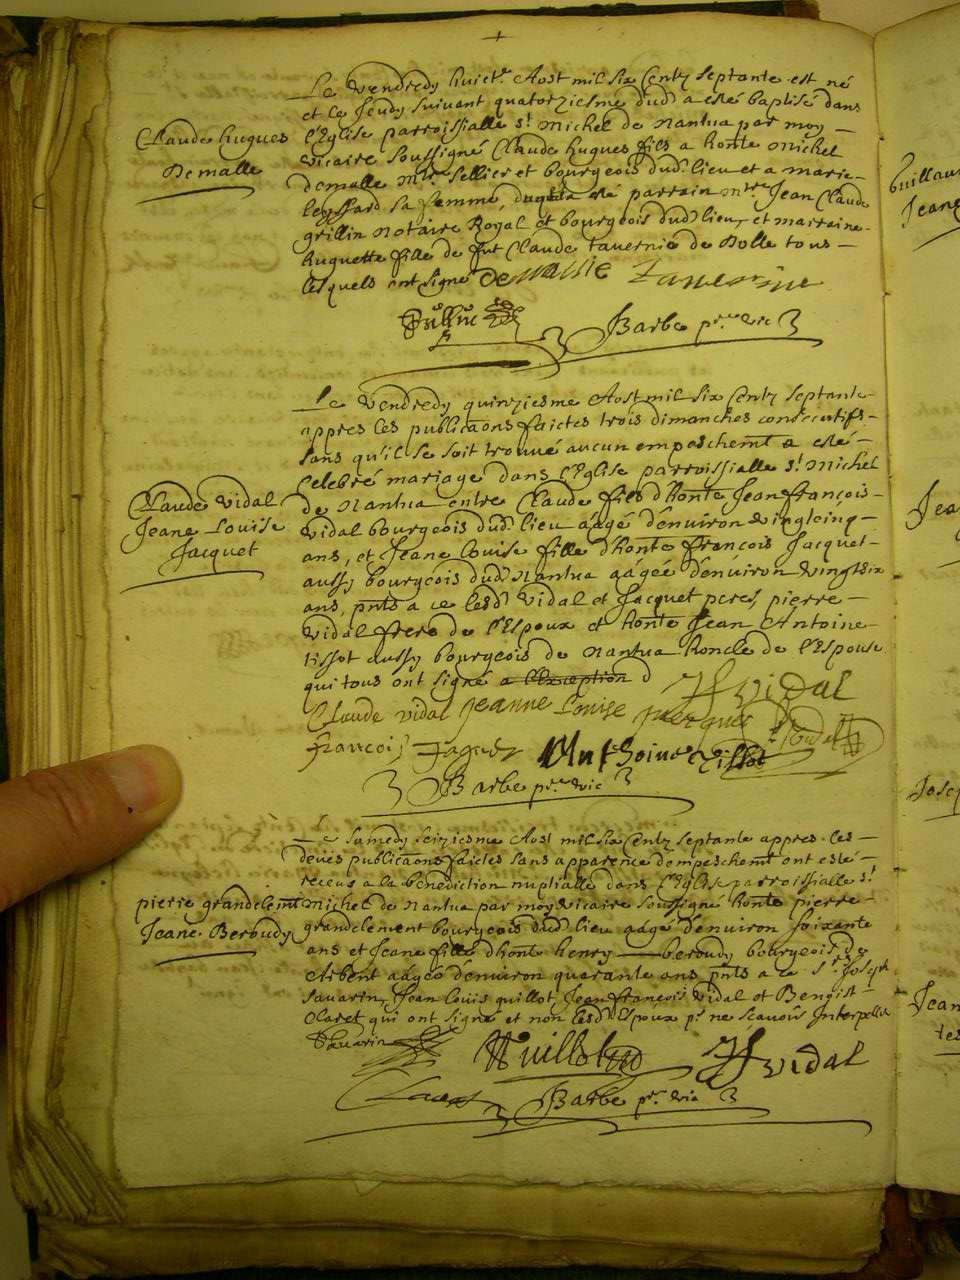 +
Le Vendredy huicte Aost mil six Centz septante est né
et le Jeudy suivant quatorziesme dud a esté baptisé dans
l'Eglise parroissialle st Michel de Nantua par moy
vicaire soussigné Claude hugues fils a honte Michel
Claude hugues
Demalle
demalle Mre sellier et bourgeois dud lieu et a marie
leyssard sa femme, duquel a esté parrain mtre Jean Claude
grillin Notaire Royal et bourgeois dud lieu, et marraine
huguette fille de fut Claude tavernie de Dolle tous
lesquels ont signé Demalle
Barbe pre vic
Le Vendredy quinziesme Aost mil six Centz septante
appres les publicaons faictes trois dimanches consecutifs
sans qu'il se soit trouvé aucun empeschemt a esté
celebré mariage dans l'Eglise parroissialle st Michel
Claude Vidal
Jeane Louise
Jacquet
de Nantua entre Claude fils d'honte Jean françois
Vidal bourgeois dud lieu aâgé d'environ vingtcinq
ans, et Jeane Louise fille d'honte françois Jacquet
aussy bourgeois dud Nantua aâgée d'environ vingtsix
ans, pnts a ce lesd Vidal et Jacquet peres, pierre
Vidal frere de l'Espoux et honte Jean Antoine
tissot aussy bourgeois de Nantua honcle de l'Espouse
qui tous ont signé a l'exception d JF vidal
Claude vidal Jeanne Louise Jacquet P Vidal
francois Jaquet Anthoine Tissot
Barbe pre vic
Le samedy seiziesme Aost mil six Centz septante appres les
deües publicaons faictes sans apparence d'empeschemt ont esté
receus a la benediction nuptialle dans l'Eglise parroissialle st
pierre grandclemt
Jeane Beroudy
Michel de Nantua par moy vicaire soussigné honte pierre
grandclement bourgeois dud lieu aâgé d'environ soixante
ans et Jeane fille d'honte henry beroudy bourgeois de
Arbent aâgée d'environ quarante ans pnts a ce sr Joseph
Savarin, Jean Louis quillot, Jean françois Vidal et Benoist
Claret qui ont signé et non lesd Espoux pr ne sçavoir Interpellés
Savarin JL Guillot JF vidal
Claret Barbe pre vic